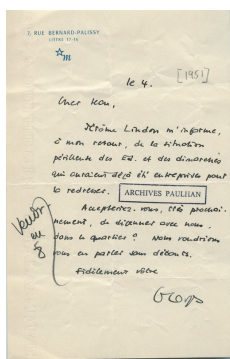 7, RUE BERNARD-PALISSY
LITTRÉ 17-16
m
le 4.
[1951]
Cher Jean,
Jérôme Lindon m'informe,
à mon retour, de la situation
périlleuse des Ed. et des démarches
qui auraient déjà été entreprises pour
la redresser.
ARCHIVES PAULHAN
Accepteriez-vous, très prochai-
nement, de déjeuner avec nous,
dans le quartier ? Nous voudrions
vous en parler sans détours.
Fidèlement vôtre